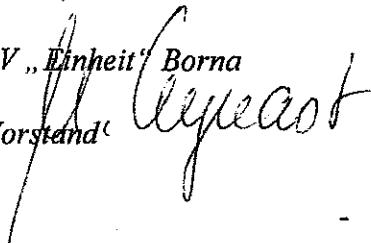 V „Einheit“ Borna
Vorstand